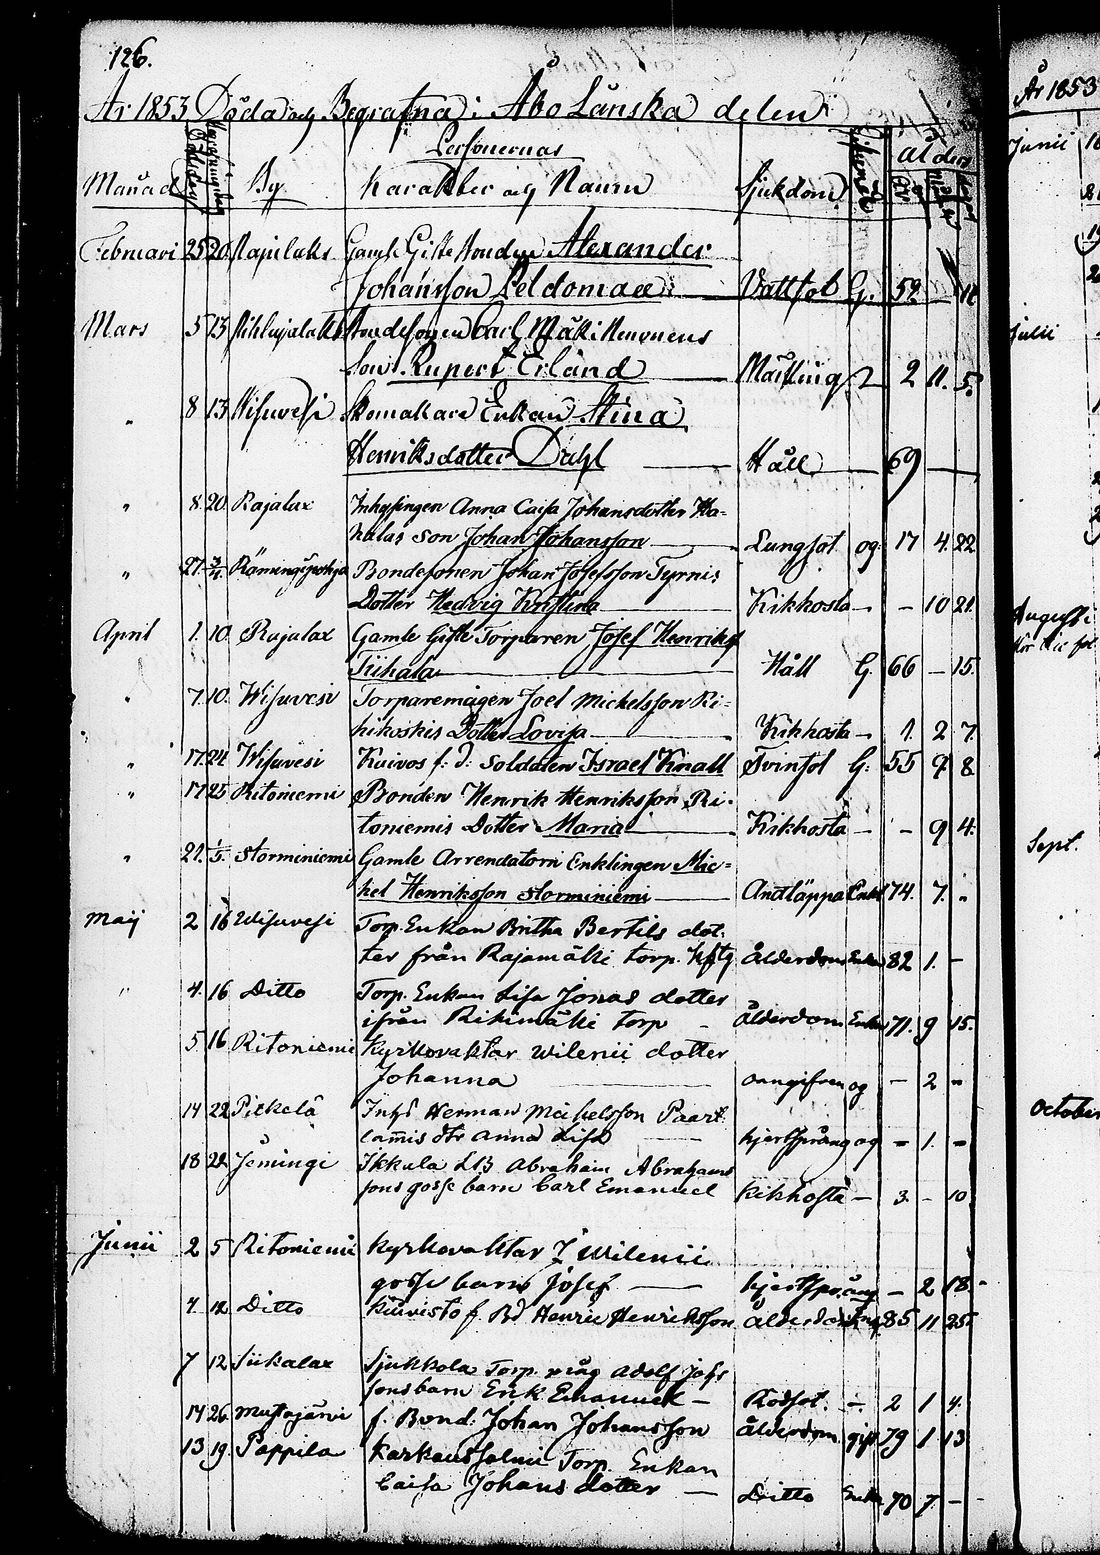 126.
År 1853 Döda och Begrafna i Åbo Länska delen
Månad By Personernas
Karakter och Namn Sjukdom Ålder
Februari 25 20 Rajalaks Gamle Gifte Bonden Alexander
Johansson Peldomaa Vattsot G. 52 — 12
Mars 5 13 Pihlajalaks Bondesonen Carl Mäki Neuvonens
Son Rupert Erland Mässling 2 11. 5.
" 8 13 Wisuvesi Skomakare Enkan Stina
Henriksdotter Dahl Håll 69 —
" 8 20 Rajalax Inhysingen Anna Caisa Johansdotter Ha-
kalas son Johan Johansson Lungsot og. 17 4. 22
" 27. Rämingspohja Bondesonen Johan Josefsson Tyrnis
Dotter Hedvig Kristina Kikhosta — - 10 21.
April 1. 10. Rajalax Gamle Gifte Torparen Josef Henriks
Tiihala Håll G. 66 — 15.
" 7. 10. Wisuvesi Torparemågen Joel Mickelsson Ri-
hikoskis Dotter Lovisa Kikhosta — 1. 2 7.
" 17. 24 Wisuvesi Kuivos f. d. Soldaten Israel Knall Tvinsot G. 55 9. 8
" 17 25 Ritoniemi Bonden Henrik Henriksson Ri-
toniemis Dotter Maria Kikhosta — - 9 4.
" 21. 1/5. Storminiemi Gamle Arrendatorn Enklingen Mic-
hel Henriksson Storminiemi Andtäppa Enkl 74. 7. "
Maij 2 16 Wisuvesi Torp. Enkan Britha Bertils dot-
ter från Rajamäki torp. Ålderdom Enka 82 1. -
" 4. 16 Ditto Torp. Enkan Lisa Jonas dotter
ifrån Rikimäki torp - Ålderdom Enka 71. 9 15.
5 16 Ritoniemi Kyrkovaktar Wilenii dotter
Johanna oangifven og — 2 "
14 22 Pitkelä Inhs Herman Michelsson Paart
lammis dtr Anna Lisa hjertsprång og - 1. -
18 22 Jämingi Ikkala Abraham Abrahams
sons gosse barn Carl Emanuel Kikhosta — 3. - 10
Junii 2 5 Ritoniemi Kyrkovaktar J Wilenii
gosse barn Josef — hjertsprång — 2 18.
4. 12 Ditto Kuivisto f. Bd Henric Henriksson Ålderdom 85 11 25
7 12 Siikalax Sjukkola Torp. måg Adolf Jos
sons barn Erik Emanuel — Rödsot. — 2 1 4.
14 26 Mustajärvi f. Bond. Johan Johansson Ålderdom gift 79 1 13
13 19. Pappila Karkaussalmi Torp. Enkan
Caisa Johans dotter — Ditto Enka 70 7. -
År 1853
Junii
Julii
Augusti
Sept.
October